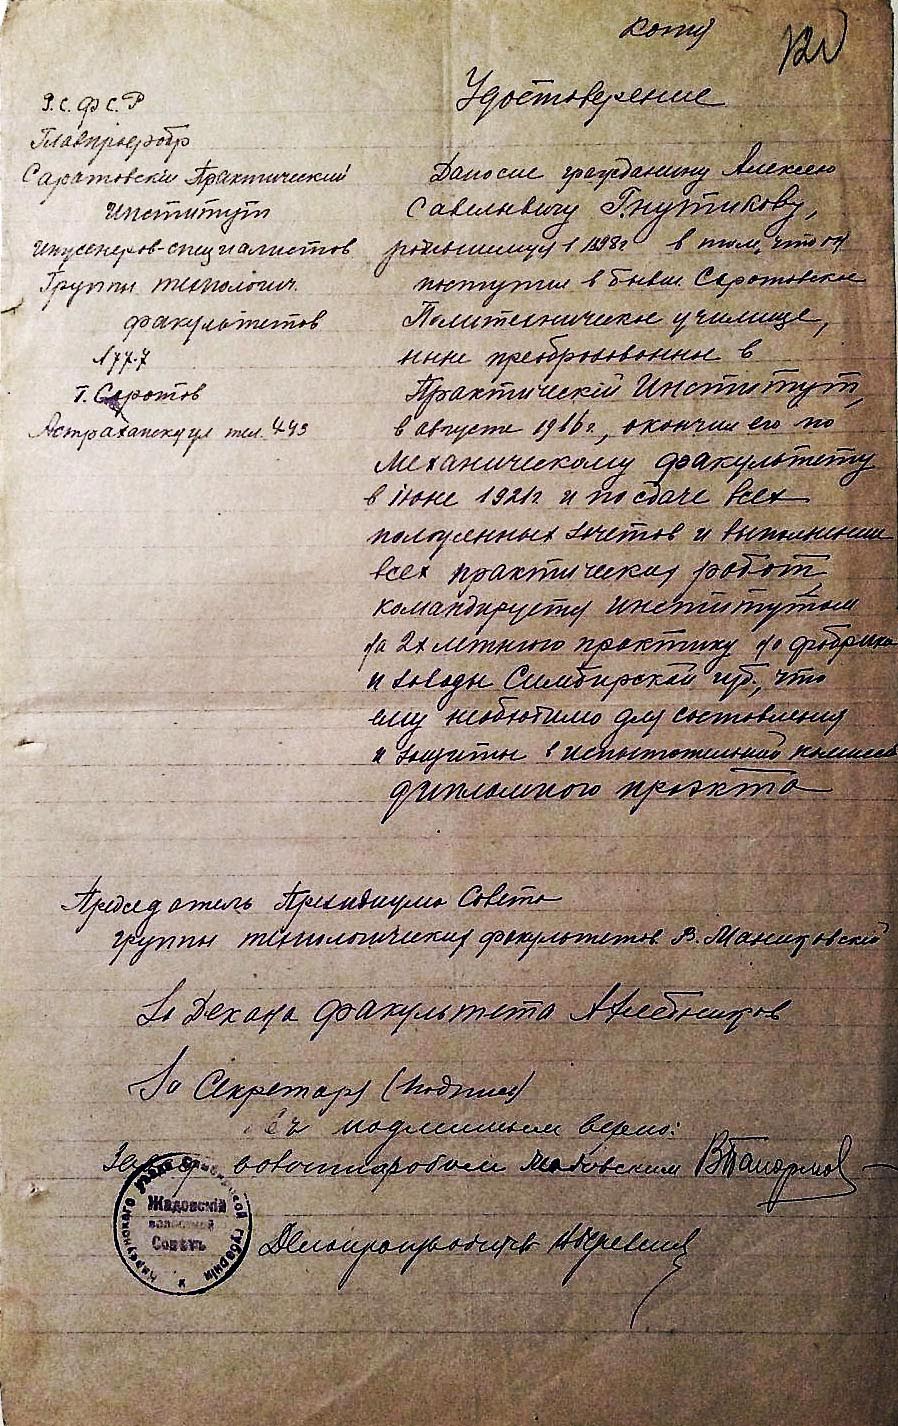 Копия
120
Удостоверение
Р.С.Ф.С.Р
Главпрофобр
Саратовский Практический
Институт
Инженеров-специалистов
Группы технологич.
факультетов
№ 77-7
г. Саратов
Астраханская ул тел. 4-93
Даносие гражданину Алексею
Савельевичу Гнутикову,
родившемуся в 1898 г в том, что он
поступил в бывш. Саратовское
Политехническое училище,
ныне преобразованное в
Практический Институт,
в августе 1916 г., окончил его по
Механическому факультету
в Июне 1921 г и по сдаче всех
полученных зачетов и выполнении
всех практических работ,
командируется Институтом
на 2х летнюю практику на фабрики
и заводы Симбирской губ., что
ему необходимо для составления
и защиты в испытательной комиссии
дипломного проекта
Председатель Президиума Совета
группы технологических факультетов В.
За Декана факультета А Хлебников
За Секретаря (подпись)
С подлинным верно:
Жадовским
Делопроизводитель
Карсунского уезда Симбирской губернии
Жадовский
волостной
Советъ